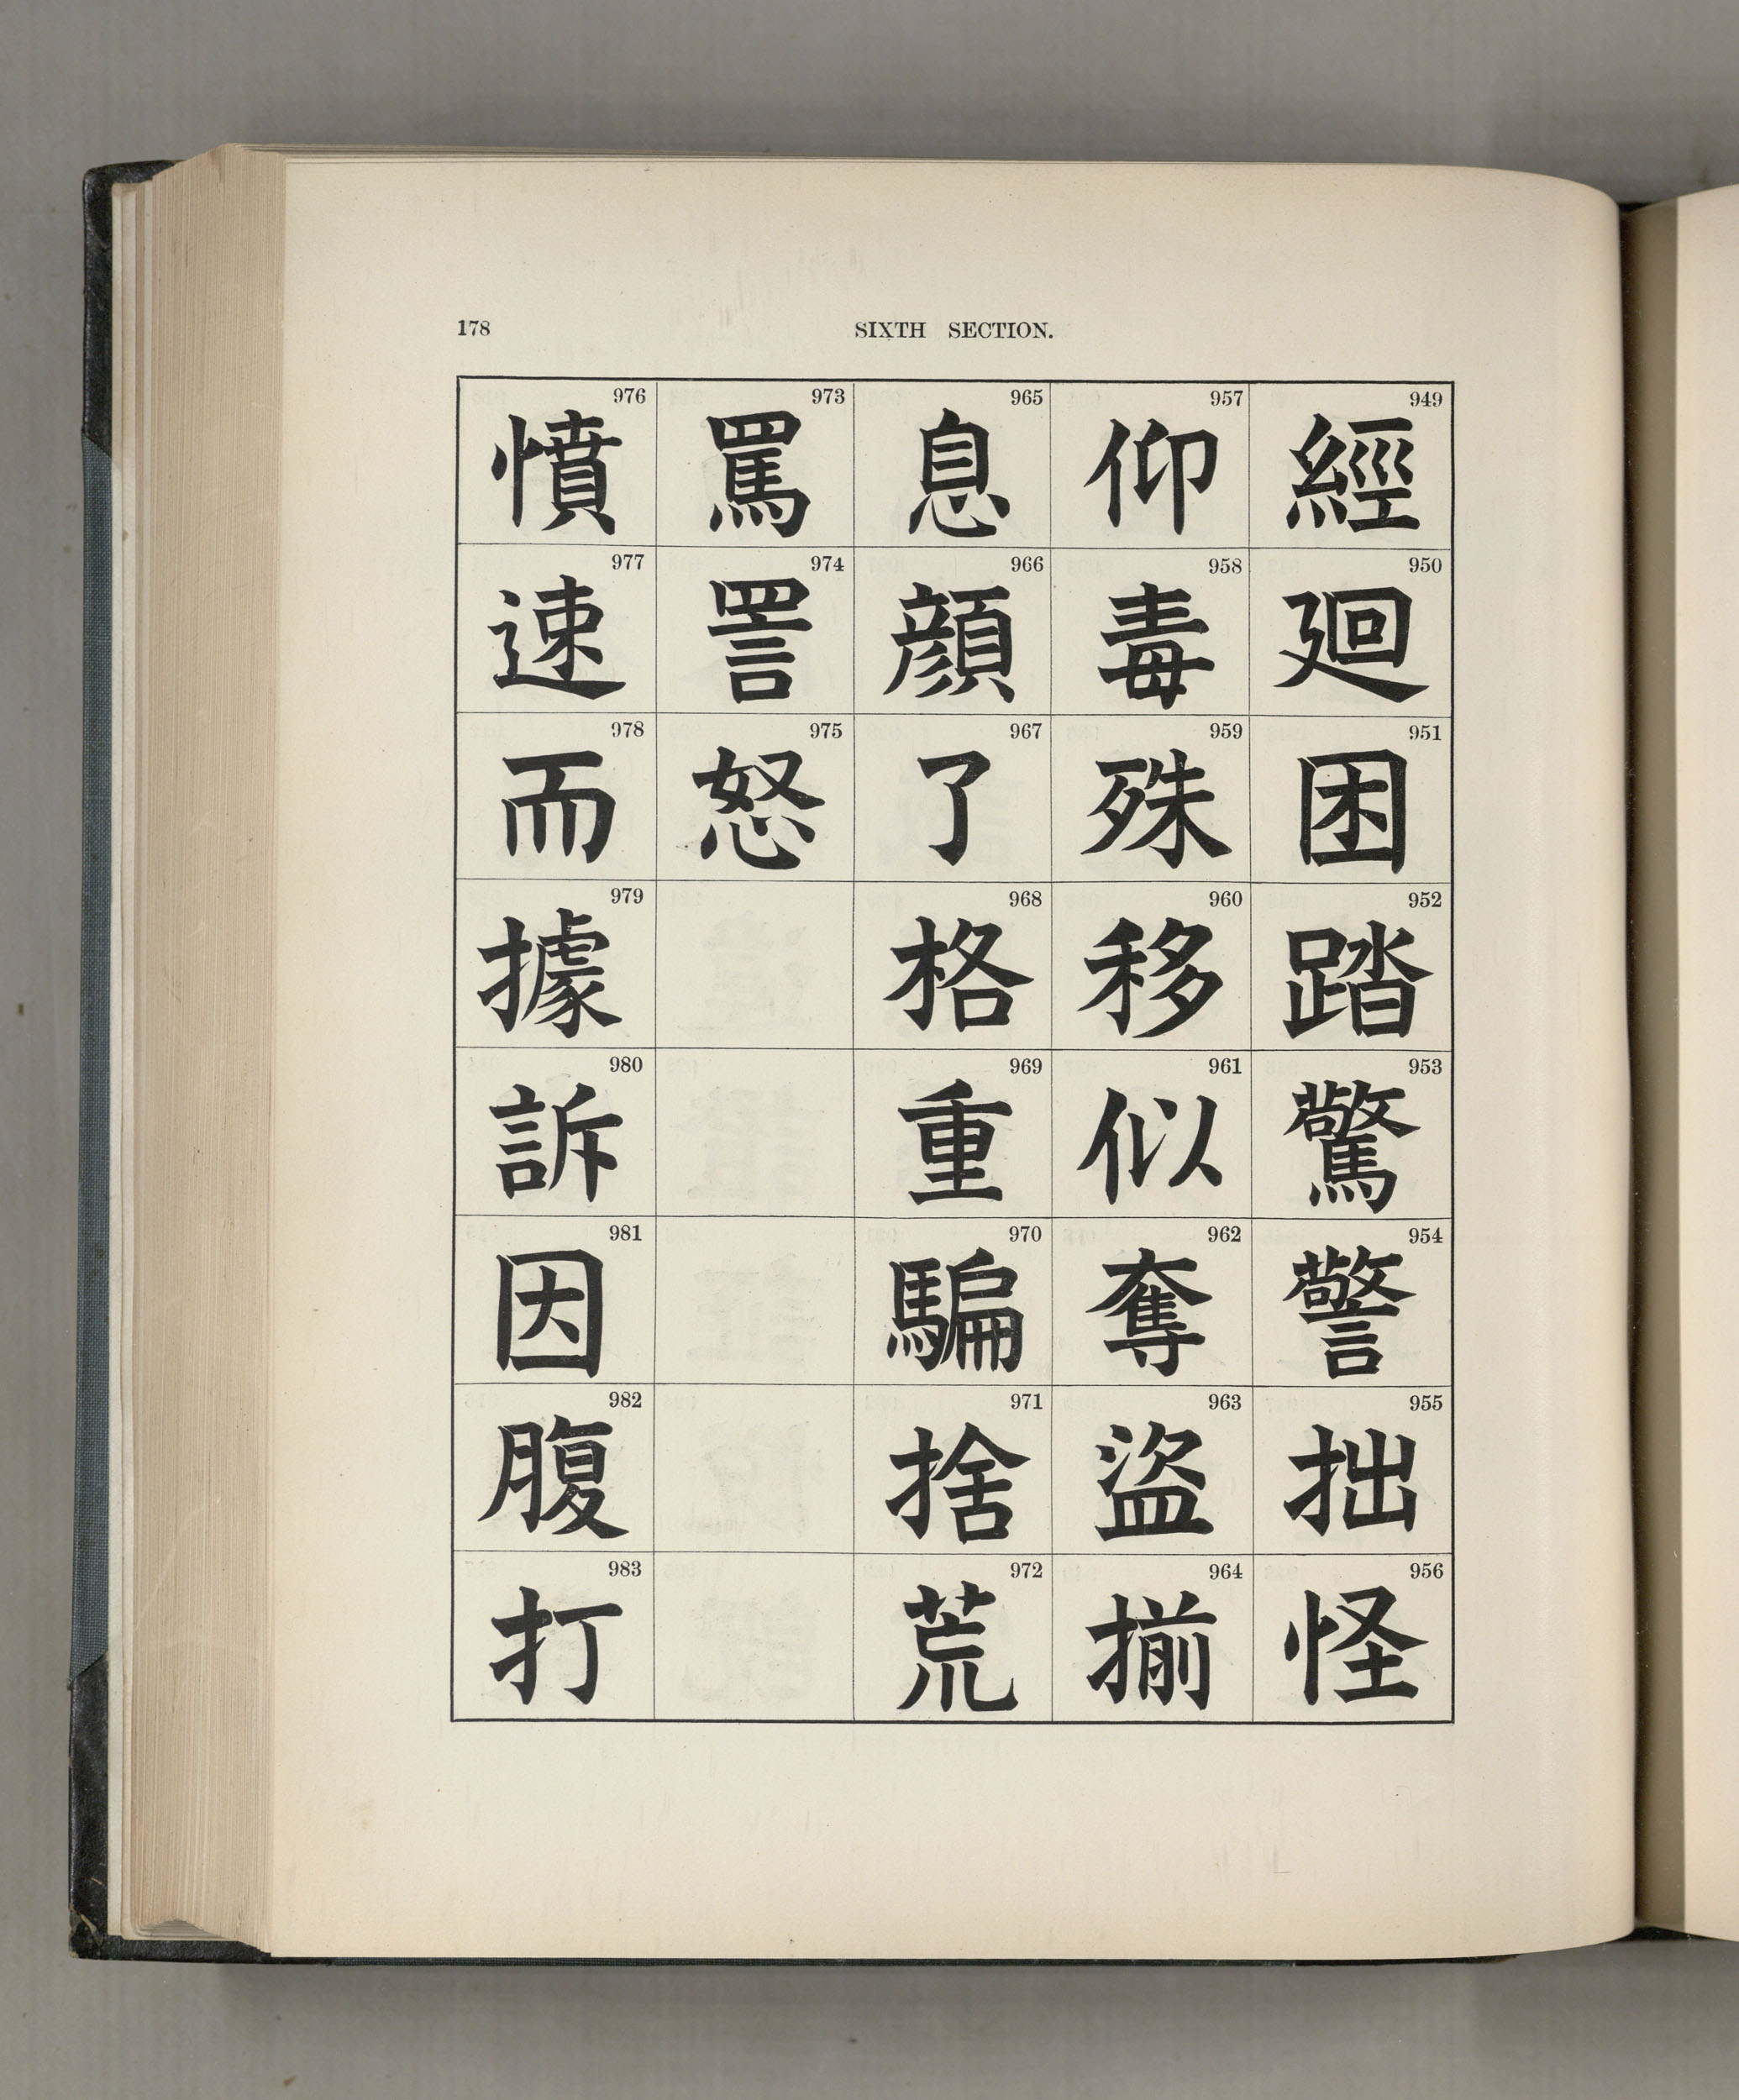 178
SIXTH SECTION.
949 經
950 廻
951 困
952 踏
953 驚
954 警
955 拙
956 怪
957 仰
958 毒
959 殊
960 移
961 似
962 奪
963 盜
964 揃
965 息
966 顔
967 了
968 格
969 重
970 騙
971 捨
972 荒
973 罵
974 詈
975 怒
976 憤
977 速
978 而
979 據
980 訴
981 因
982 腹
983 打